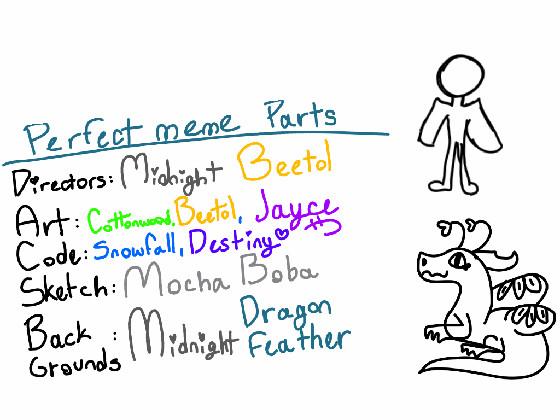 Perfect meme Parts
Directors: Midnight Beetol
Art: Cottonwood, Beetol, Jayce
Code: Snowfall, Destiny
Sketch: Mocha Boba
Back Grounds: Midnight Dragon Feather